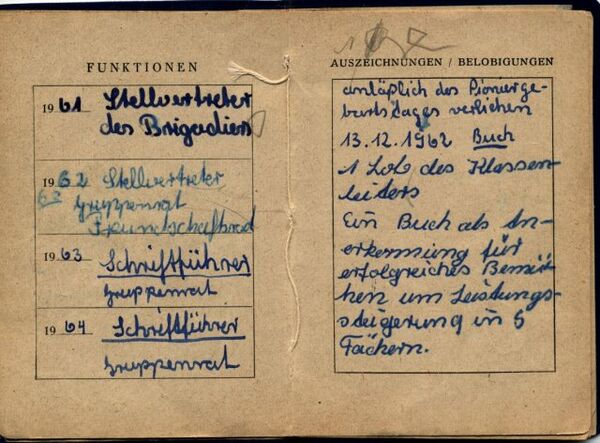 FUNKTIONEN
1961 Stellvertreter
des Brigadiers
1962 Stellvertreter
63 Gruppenrat
Freundschaftsrat
1963 Schriftführer
Gruppenrat
1964 Schriftführer
Gruppenrat
AUSZEICHNUNGEN / BELOBIGUNGEN
anläßlich des Pionierge-
burtstages verliehen
13.12.1962 Buch
1 Lob des Klassen-
leiters
Ein Buch als An-
erkennung für
erfolgreiches Bemü-
hen um Leistungs-
steigerung in 5
Fächern.